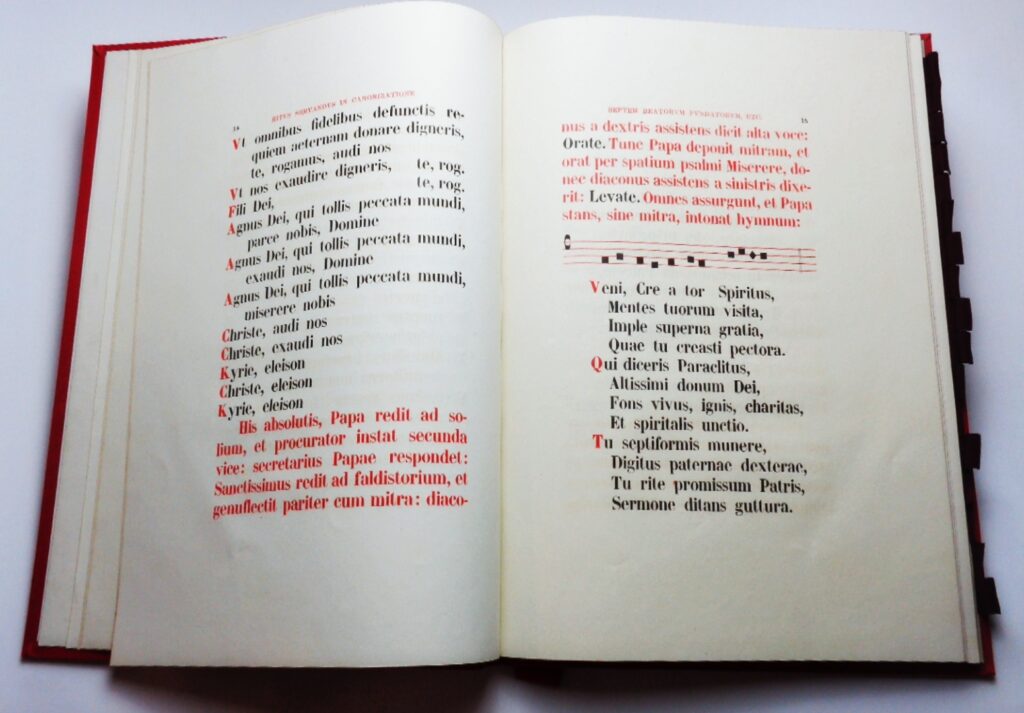 14
RITUS SERVANDUS IN CANONIZATIONE
Vt omnibus fidelibus defunctis re-
quiem aeternam donare digneris,
te, rogamus, audi nos
Vt nos exaudire digneris, te, rog.
Fili Dei, te, rog.
Agnus Dei, qui tollis peccata mundi,
parce nobis, Domine
Agnus Dei, qui tollis peccata mundi,
exaudi nos, Domine
Agnus Dei, qui tollis peccata mundi,
miserere nobis
Christe, audi nos
Christe, exaudi nos
Kyrie, eleison
Christe, eleison
Kyrie, eleison
His absolutis, Papa redit ad so-
lium, et procurator instat secunda
vice: secretarius Papae respondet:
Sanctissimus redit ad faldistorium, et
genuflectit pariter cum mitra: diaco-
SEPTEM BEATORUM FUNDATORUM, ETC.
15
nus a dextris assistens dicit alta voce:
Orate. Tunc Papa deponit mitram, et
orat per spatium psalmi Miserere, do-
nec diaconus assistens a sinistris dixe-
rit: Levate. Omnes assurgunt, et Papa
stans, sine mitra, intonat hymnum:
Veni, Cre a tor Spiritus,
Mentes tuorum visita,
Imple superna gratia,
Quae tu creasti pectora.
Qui diceris Paraclitus,
Altissimi donum Dei,
Fons vivus, ignis, charitas,
Et spiritalis unctio.
Tu septiformis munere,
Digitus paternae dexterae,
Tu rite promissum Patris,
Sermone ditans guttura.